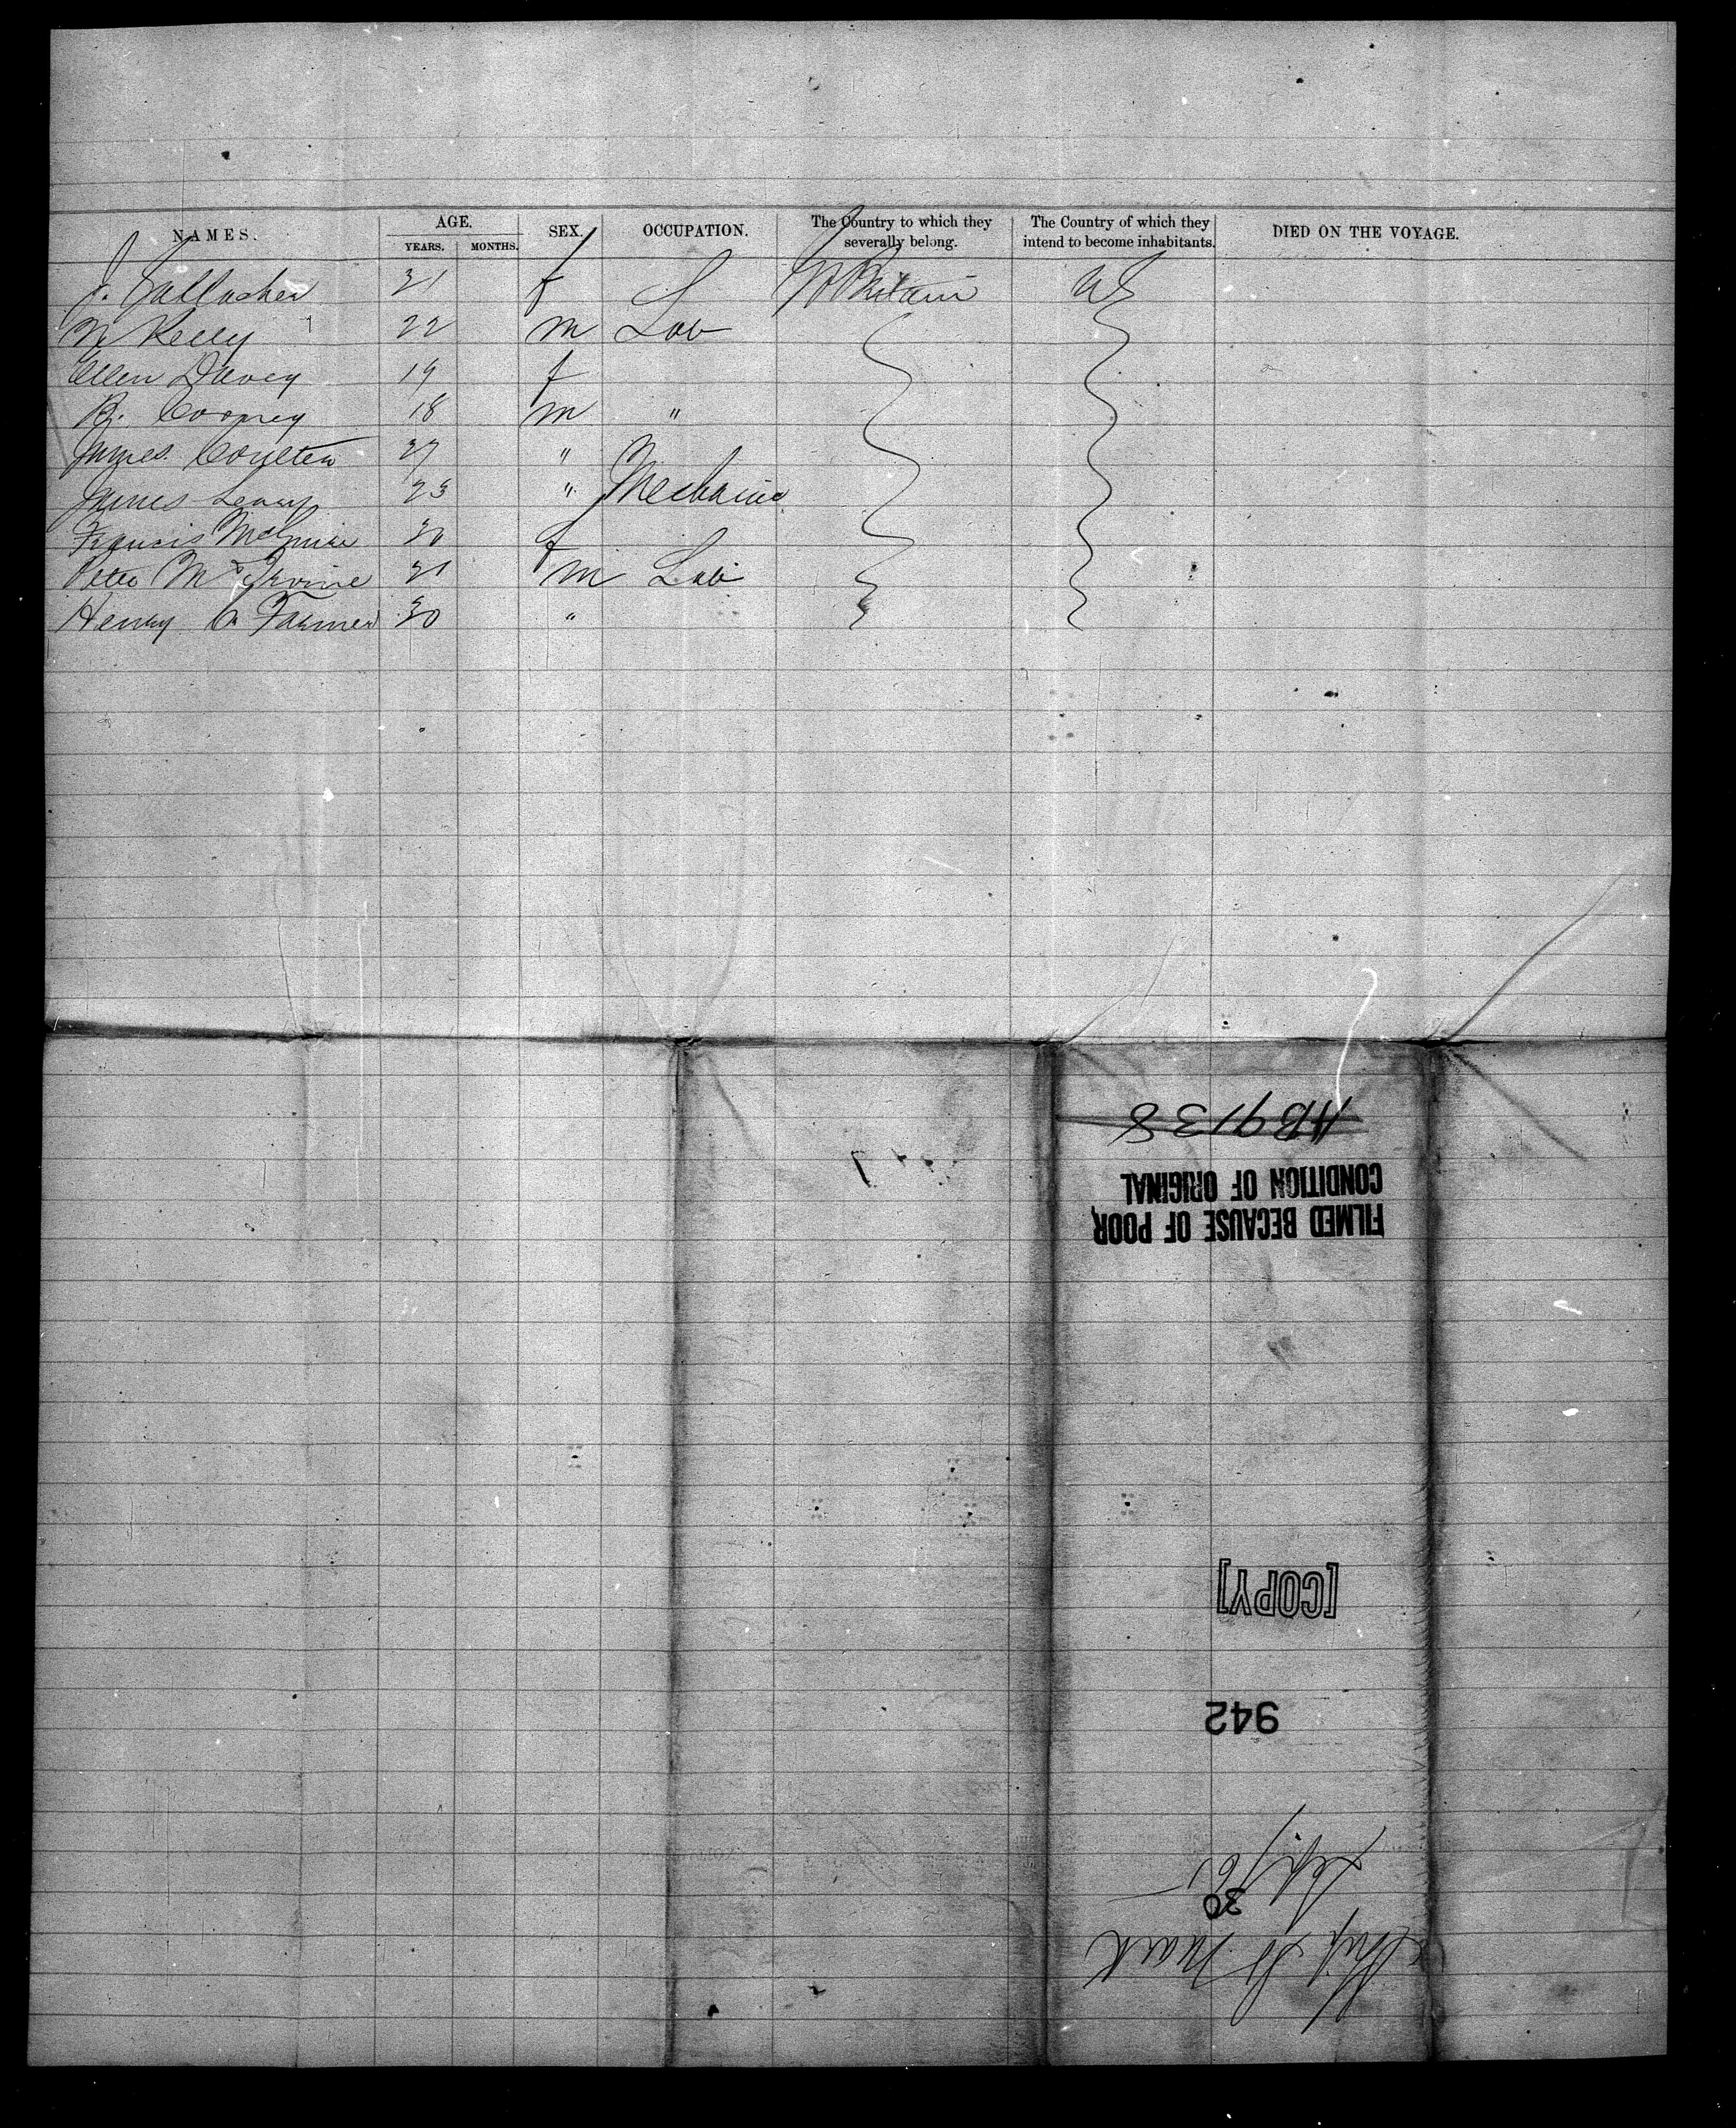 NAMES. AGE. SEX. OCCUPATION. The Country to which they severally belong. The Country of which they intend to become inhabitants. DIED ON THE VOYAGE.
YEARS. MONTHS.
J. Gallagher 31 f Gt Britain US
Kelly 22 m Lab
Ellen Davey 19 f
Cooney 18 m "
James Coulter 27 "
James Leary 23 " Mechanic
Francis McGuire 30 f
Peter 21 m Lab
Henry C Farmer 30 "
AB9138
CONDITION OF ORIGINAL
FILMED BECAUSE OF POOR
[COPY]
942
30
Ship St Mark